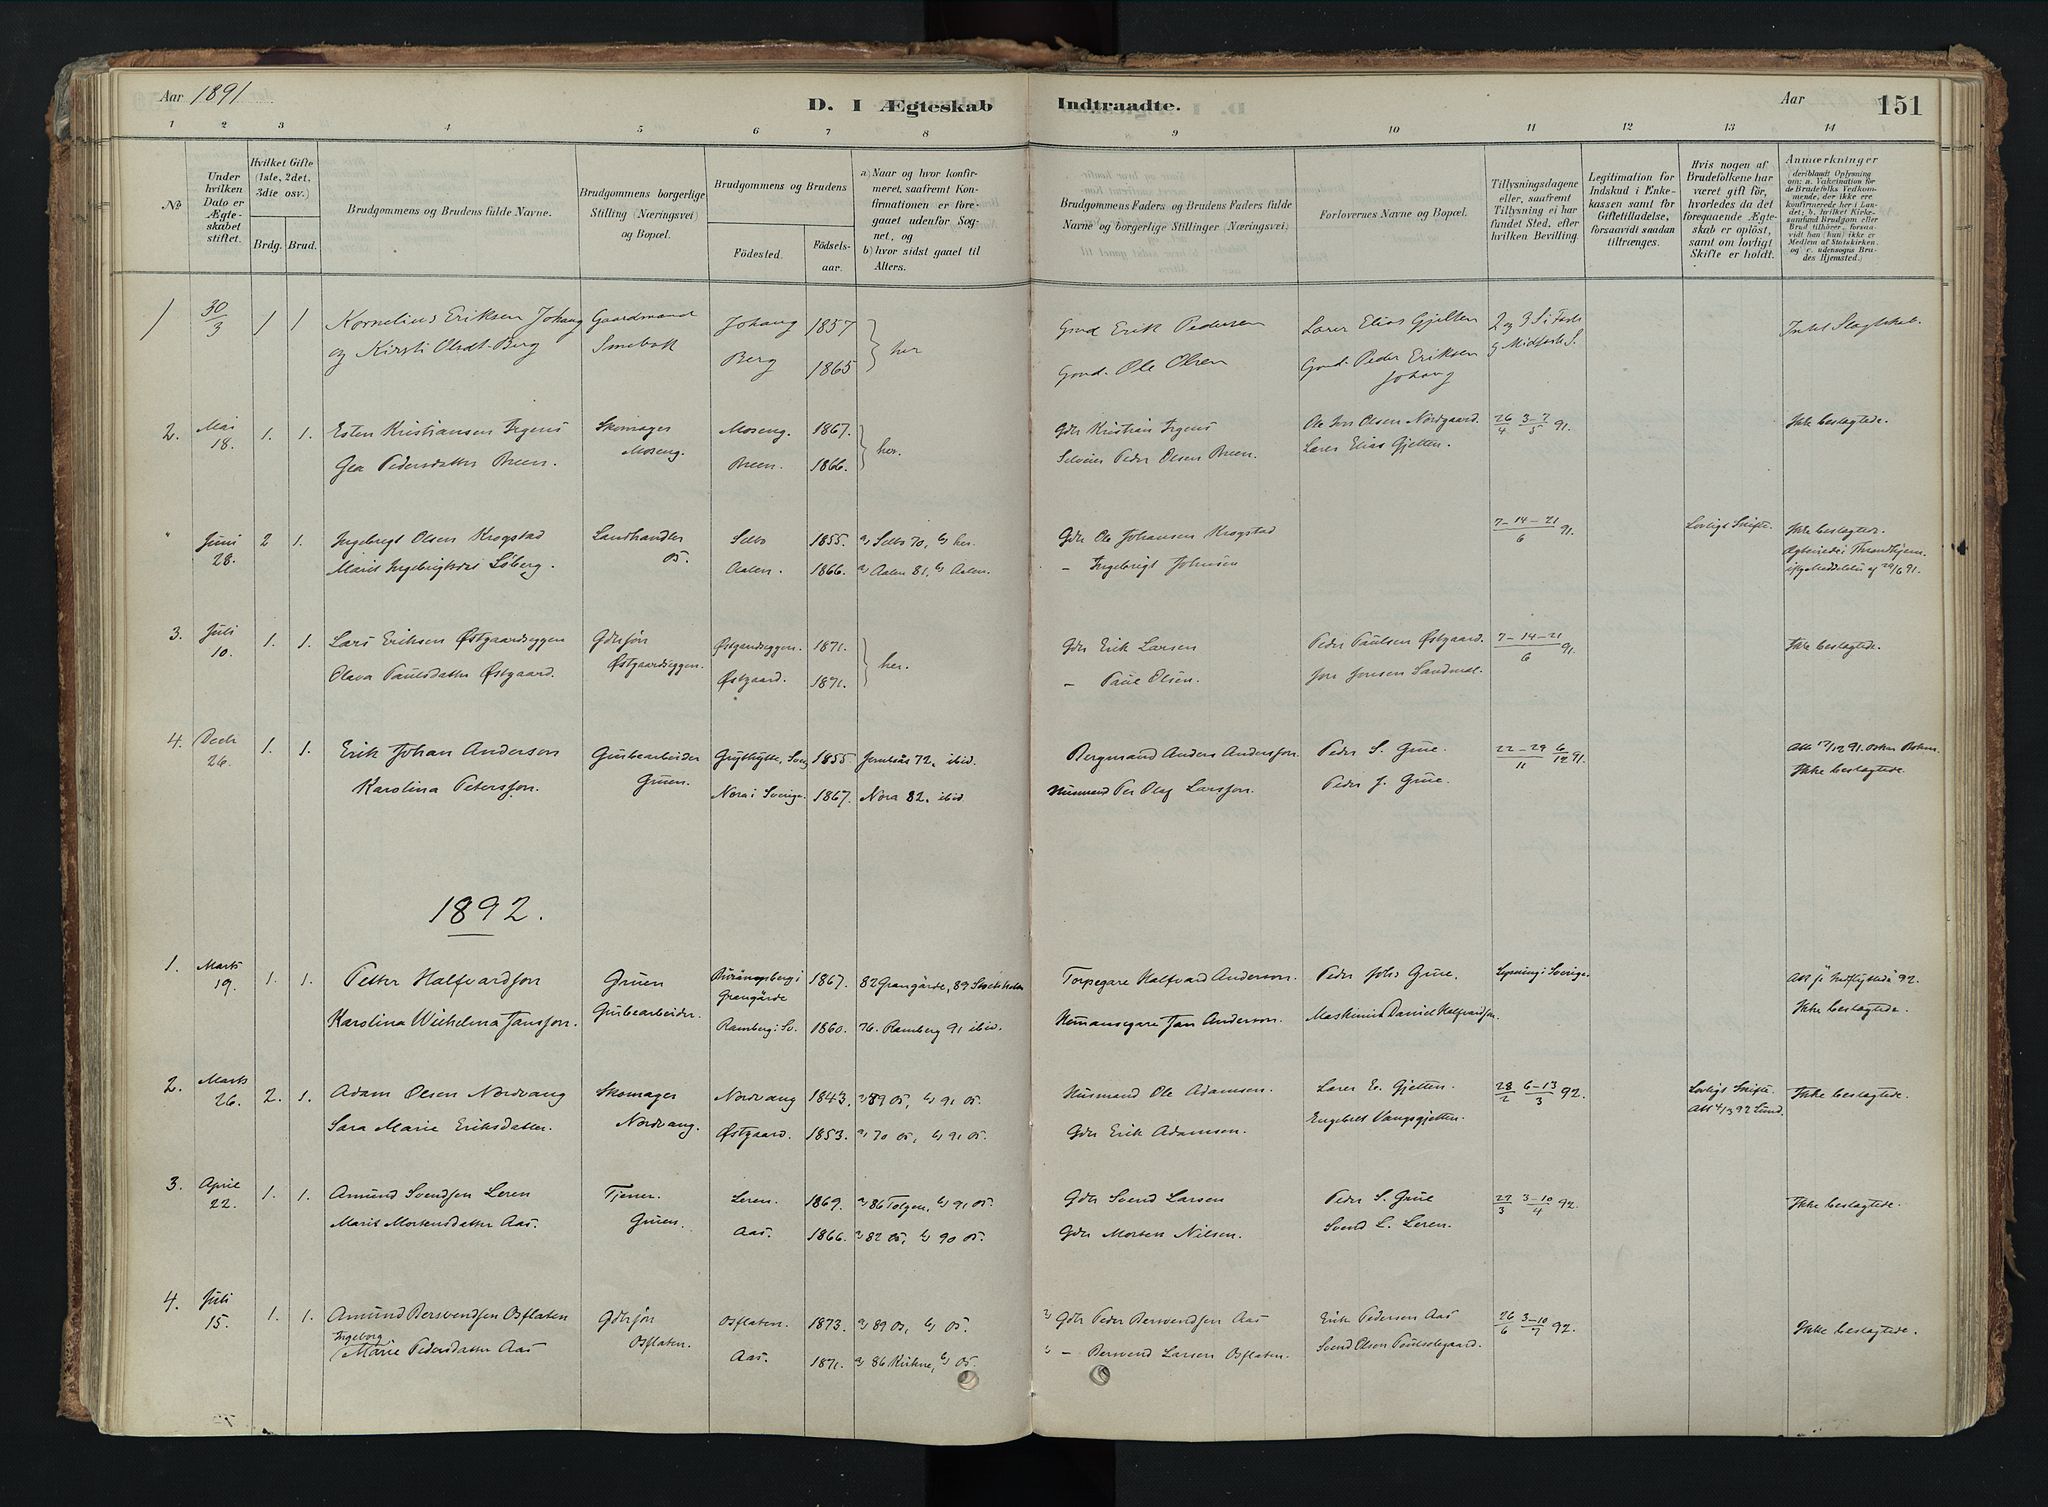 Aar 1891
D. I Ægteskab Indtraadte.
Aar 151
1 2 3 4 5 6 7 8 9 10 11 12 13 14
No
Under hvilken Dato er Ægteskabet stiftet.
Hvilket Gifte (1ste, 2det, 3die osv.)
Brdg. Brud.
Brudgommens og Brudens fulde Navne.
Brudgommens borgerlige Stilling (Næringsvei) og Bopæl.
Brudgommens og Brudens
Födested. Födselsaar.
a) Naar og hvor konfirmeret, saafremt Konfirmationen er foregaaet udenfor Sognet, og
b) hvor sidst gaaet til Alters.
Brudgommens Faders og Brudens Faders fulde Navne og borgerlige Stillinger (Næringsvei)
Forlovernes Navne og Bopæl.
Tillysningsdagene eller, saafremt Tillysning ei har fundet Sted, efter hvilken Bevilling.
Legitimation for Indskud i Enkekassen samt for Giftetilladelse, forsaavidt saadan tiltrænges.
Hvis nogen af Brudefolkene har været gift för, hvorledes da det foregaaende Ægteskab er oplöst, samt om lovligt Skifte er holdt.
Anmærkninger (deriblandt Oplysning om: a. Vakcination for de Brudefolks Vedkommende, der ikke ere konfirmerede her i Landet; b. hvilket Kirkesamfund Brudgom eller Brud tilhörer, forsaavidt han (hun) ikke er Medlem af Statskirken og c. udensogns Brudes Hjemsted.)
1 30/3 1 1 Kornelius Eriksen Johaug Gaardmand Johaug 1857 Gmd Erik Pedersen Lærer Elias Gjelten
og Kirsti Olsdt. Berg Berg 1865 her Gmd. Ole Olsen Gmd. Peder Eriksen Johaug
2. Mai 18. 1. 1. Esten Kristiansen Irgens Skomager Moseng. 1867. Gdr Kristian Irgens Nordgaard. 26/4 3-7/5 91. Ikke beslagtede.
Gea Pedersdatter Breen. Moseng. Breen. 1866. her. Peder Olsen Breen. Lærer Elias Gjelten.
" Juni 28. 2 1. Ingebrigt Olsen Krogstad Landhandler Selbo 1855. a) Selbo 70, b) her. Gdr Ole Johansen Krogstad 7-14-21/6 91. Lovligt Skifte. Ikke beslagtede.
Marit Ingebrigtsdt Löberg. Os. Aalen. 1866. a) Aalen 81, b) Aalen. - Ingebrigt Johnsen Ægteviede i Throndhjem
3. Juli 10. 1. 1. Lars Eriksen Østgaardseggen Gdrsön Østgaardseggen. 1871. Gdr Erik Larsen Peder Paulsen Østgaard. 7-14-21/6 91. Ikke beslagtede.
Olava Paulsdatter Østgaard. Østgaardseggen. Østgaard. 1871. her. - Paul Olsen. Jon Jonsen Sandmæl.
4. Decbr 26. 1. 1. Erik Johan Anderson Grubearbeider 1855 72. ibid. Bergmand Anders Andersson. Peder S. Grue. 22-29/11 6/12 91.
Karolina Petersson. Gruen. Nora i Sverige. 1867. Nora 82. ibid. Husmand Per Olof Larsson. Peder J. Grue. Ikke beslagtede.
1892.
1. Marts 19. 1. 1. Petter Halfvardsson Gruen Grangärde 1867. 82 Grangärde, 89 Stockholm Torpegare Halfvard Anderson. Peder Johs Grue. Lysning i Sverige.
Karolina Wilhelmina Jansson. Grubearbeider. Ramberg i Sv. 1860. 76. Ramberg 91 ibid. Hemansegare Jan Anderson. Maskinist Daniel Halfvardson. Ikke beslagtede.
2. Marts 26. 2. 1. Adam Olsen Nordvang Skomager Nordvang 1843. a) 89 Os, b) 91 Os. Husmand Ole Adamsen. Lærer E. Gjelten. 28/2 6-13/3 92. Lovligt Skifte. Ikke beslagtede.
Sara Marie Eriksdatter. Nordvang. Østgaard. 1853. a) 70 Os, b) 91 Os. Gdr Erik Adamsen. Engebret Vangsgjelten. Att 4/3 92 Lund.
3. April 22. 1. 1. Amund Svendsen Leren Tjener. Leren. 1869. a) 86 Tolgen, b) 91 Os. Gdr Svend Larsen Peder S. Grue 27/3 3-10/4 92. Ikke beslagtede.
Marit Mortensdatter Aas. Gruen. Aas. 1866. a) 82 Os, b) 90 Os. Gdr Morten Nilsen. Svend L. Leren.
4. Juli 15. 1. 1. Amund Bersvendsen Osflaten Gdrsön Osflaten. 1873. a) 89 Os, b) Os. Gdr Peder Bersvendsen Aas Erik Pedersen Aas 26/6 3-10/7 92. Ikke beslagtede.
Ingeborg Marie Pedersdatter Aas Osflaten. Aas. 1871. a) 86 b) Os. - Bersvend Larsen Osflaten. Svend Olsen